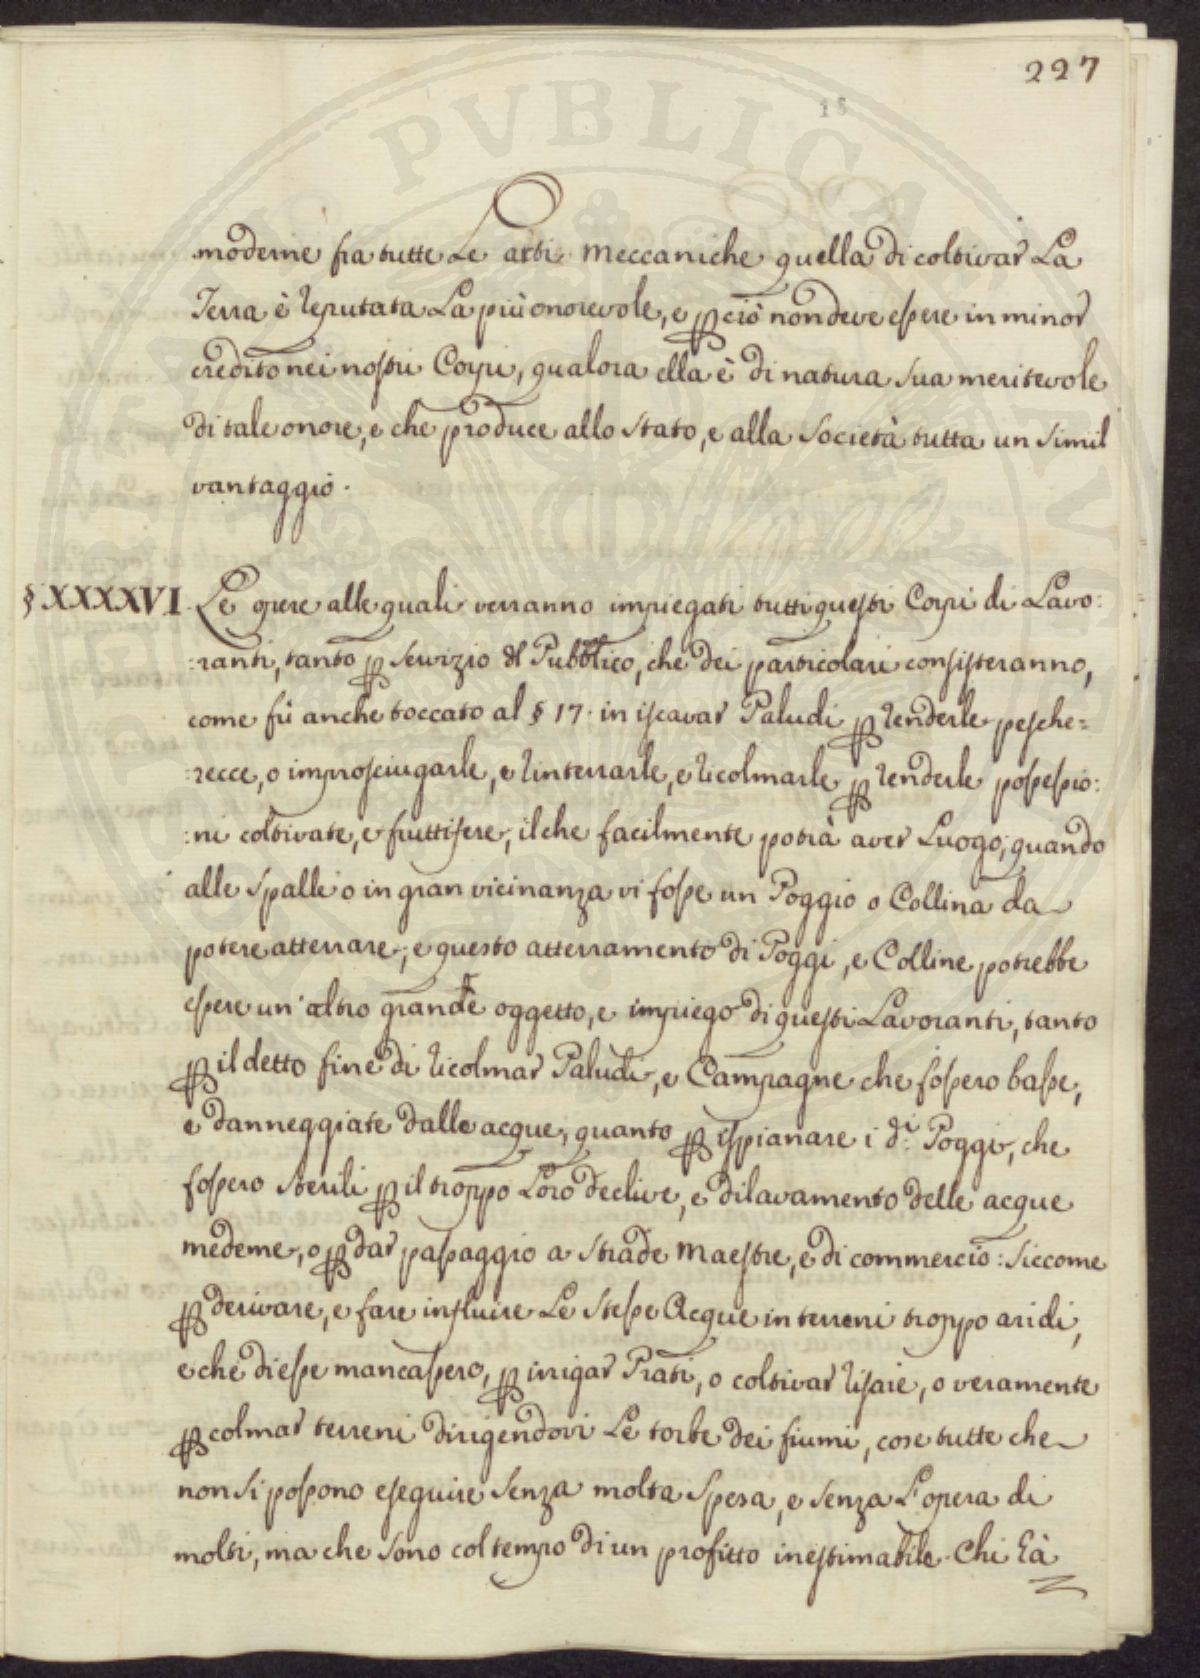 227
18
moderne fra tutte Le arti meccaniche quella di coltivar La
Terra è reputata La più onorevole, e p ciò non deve essere in minor
credito nei nostri Corpi, qualora ella è di natura sua meritevole
di tale onore, e che produce allo stato, e alla Società tutta un simil
vantaggio.
§ XXXXVI Le opere alle quali verranno impiegati tutti questi Corpi di Lavo:
:ranti, tanto p servizio del Pubblico, che dei particolari consisteranno,
come fù anche toccato al § 17. in iscavar Paludi p renderle pesche=
:recce, o improsciugarle, e rinterrarle, e ricolmarle p renderle possessio:
:ni coltivate, e fruttifere, il che facilmente potrà aver Luogo, quando
alle spalle o in gran vicinanza vi fosse un Poggio o Collina da
potere atterrare; e questo atterramento di Poggi, e Colline potrebbe
essere un' altro grande oggetto, e impiego di questi Lavoranti, tanto
p il detto fine di ricolmar Paludi, e Campagne che fossero basse,
e danneggiate dalle acque, quanto p ispianare i d.i Poggi, che
fossero sterili p il troppo Loro declive, e dilavamento delle acque
medeme, o p dar passaggio a strade maestre, e di commercio: siccome
p derivare, e fare influire Le stesse Acque in terreni troppo aridi,
e che di esse mancassero, p irrigar Prati, o coltivar risaie, o veramente
p colmar terreni dirigendovi Le torbe dei fiumi, cose tutte che
non si possono eseguire senza molta spesa, e senza L'opera di
molti, ma che sono col tempo di un profitto inestimabile. Chi rà
PUBLICAE